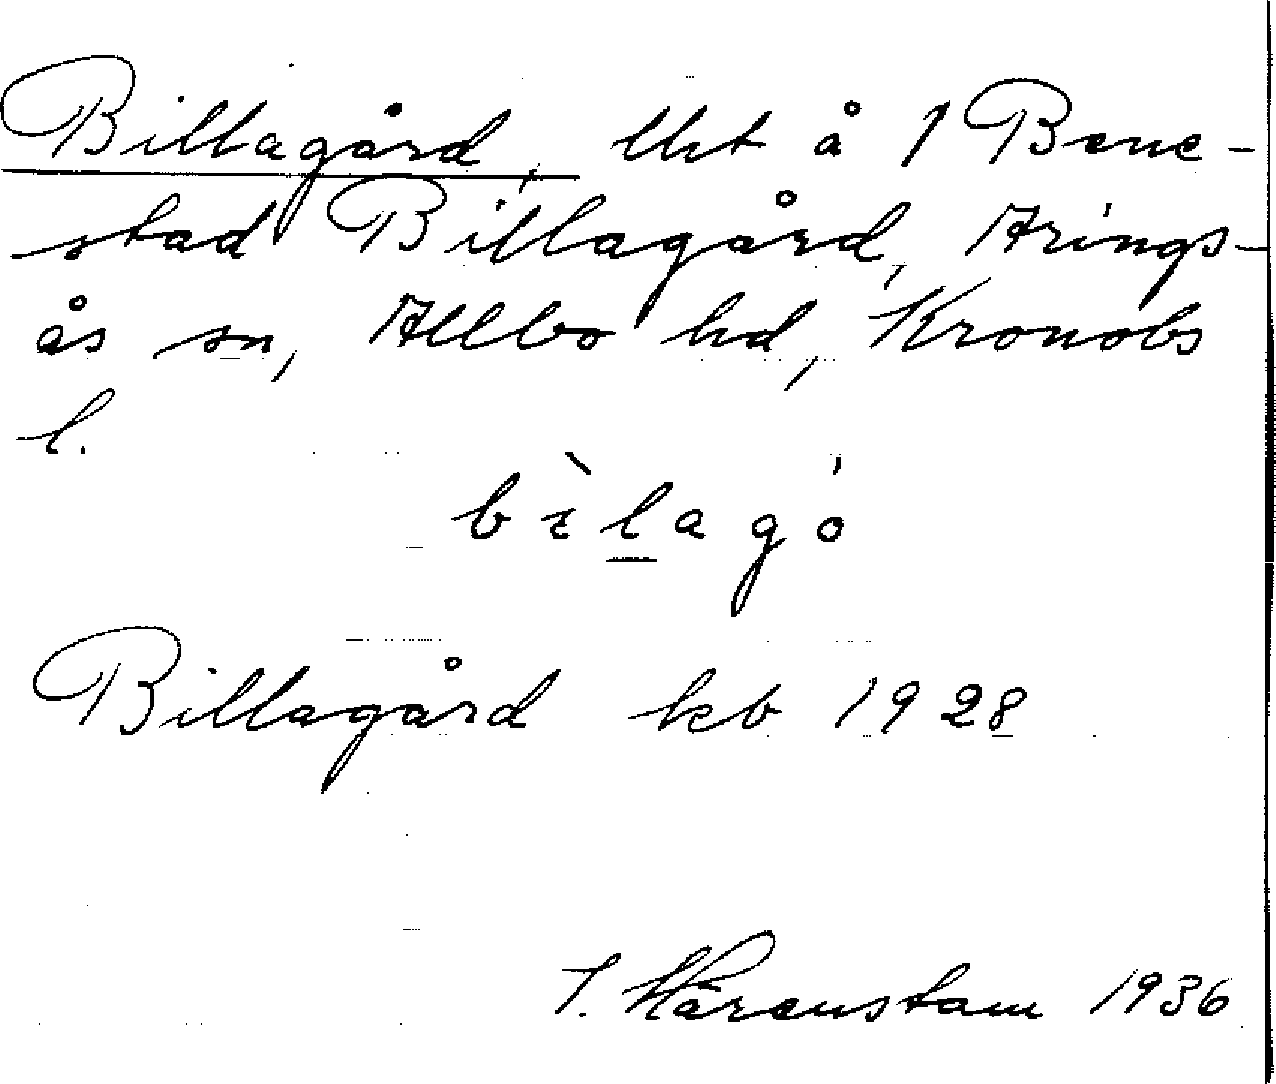 Billagård, lht å 1 Bene-
stad Billagård, Arings-
ås sn, Allbo hd, Kronobs
l.
bìlagó
Billagård kb 1928
1936